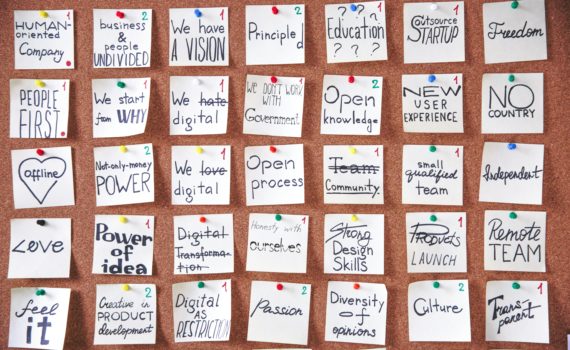 HUMAN-
oriented
Company
1
business
& people
UNDIVIDED
2
We have
A VISION
1
Principled
2
? ? ?
Education
? ? ? ?
outsource
STARTUP
1
Freedom
PEOPLE
FIRST
We start
from WHY
1
We hate
digital
1
We DON'T WORK
WITH
Government
1
Open
knowledge
2
NEW
USER
EXPERIENCE
1
NO
COUNTRY
offline
Not-only-money
POWER
2
We love
digital
1
Open
process
1
Team
Community
1
small
qualified
team
2
Independent
Love
Power
of
idea
1
Digital
Transforma-
tion
1
Honesty with
ourselves
1
Strong
Design
Skills
Products
LAUNCH
1
Remote
TEAM
feel
it
2
Creative in
PRODUCT
development
2
Digital
AS
RESTRICTION
1
Passion
Diversity
of
opinions
2
Culture
2
Trans
parent
1